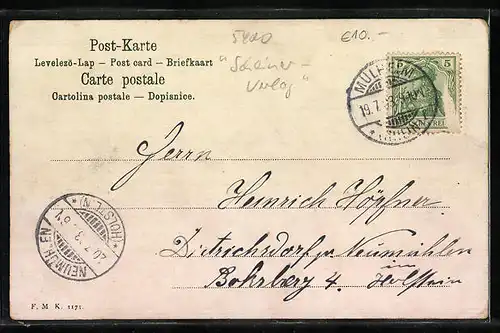 Post-Karte
Levelezö-Lap — Post card — Briefkaart
Carte postale
Cartolina postale — Dopisnice.
€10.-
5
MÜLHEIM
19.7.
Herrn
Heinrich Höpfner
Dietrichsdorf Neumühlen
Bokrberg 4. im Holstein
NEUMÜHLEN
(HOLSTEIN)
F. M. K. 1171.